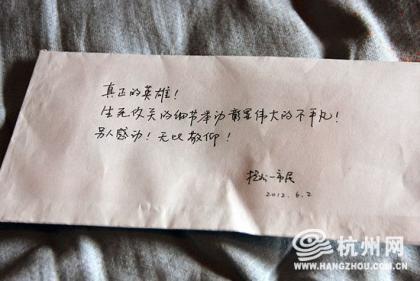 真正的英雄!
生死攸关的细节举动彰显伟大的不平凡!
另人感动!无比敬仰!
杭州一市民
2012.6.2
杭州网
WWW.HANGZHOU.COM.CN